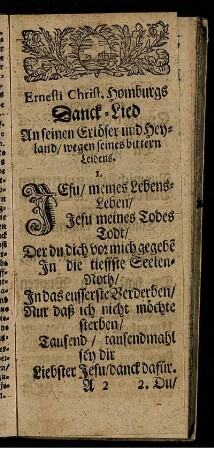 Ernesti Christ. Homburgs
Danck-Lied
An seinen Erlöser und Hey-
land/ wegen seines bittern
Leidens.
1.
JEsu/ meines Lebens-
Leben/
Jesu meines Todes
Todt/
Der du dich vor mich gegebē
In die tieffste Seelen-
Noth/
In das eusserste Verderben/
Nur daß ich nicht möchte
sterben/
Tausend/ tausendmahl
sey dir
Liebster Jesu/ danck dafür.
A 2 2. Du/